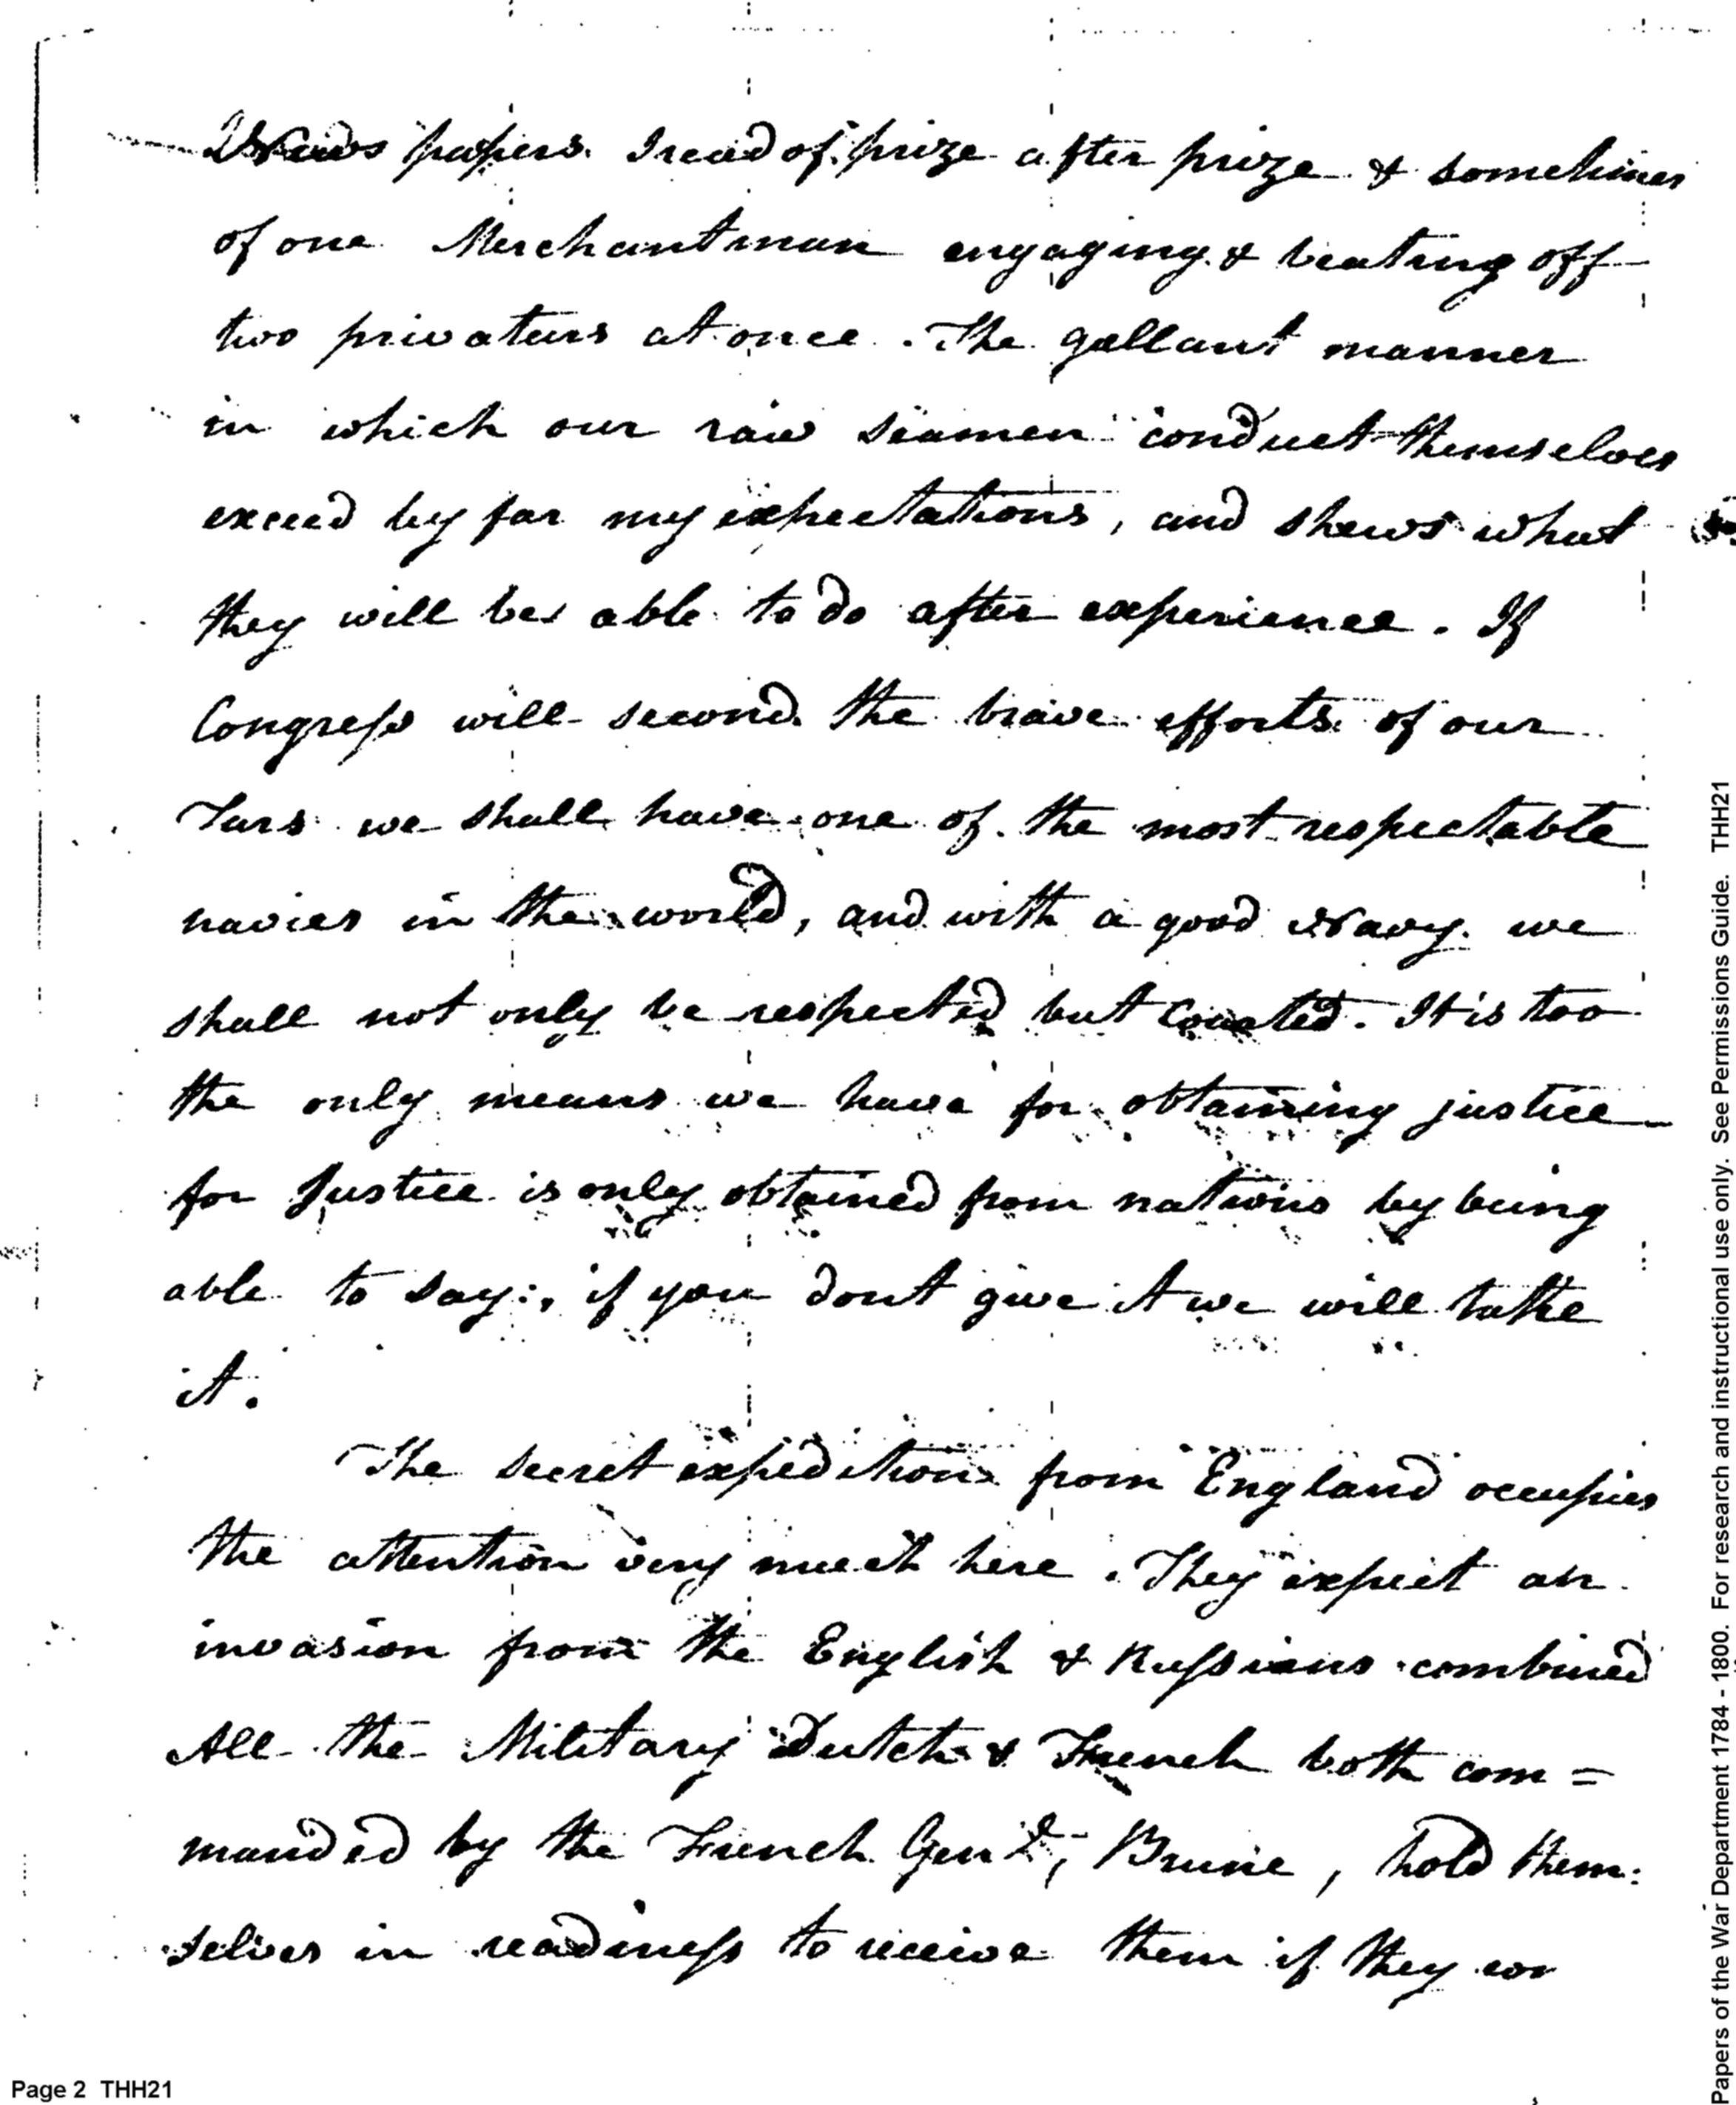 News papers. I read of prize after prize & sometimes
of one Merchantman engaging & beating off
two privateers at once. The gallant manner
in which our raw seamen conduct themselves
exceed by far my expectations, and shews what
they will be able to do after experience. If
Congress will second the brave efforts of our
Tars we shall have one of the most respectable
navies in the world, and with a good Navy we
shall not only be respected but Courted. It is too
the only means we have for obtaining justice
for Justice is only obtained from nations by being
able to say, if you dont give it we will take
it.
The secret expedition from England occupies
the attention very much here. They expect an
invasion from the English & Russians combined
All the Military Dutch & French both com=
manded by the French Genl, Brune, hold them:
selves in readiness to receive them if they
Page 2 THH21
Papers of the War Department 1784 - 1800. For research and instructional use only. See Permissions Guide. THH21